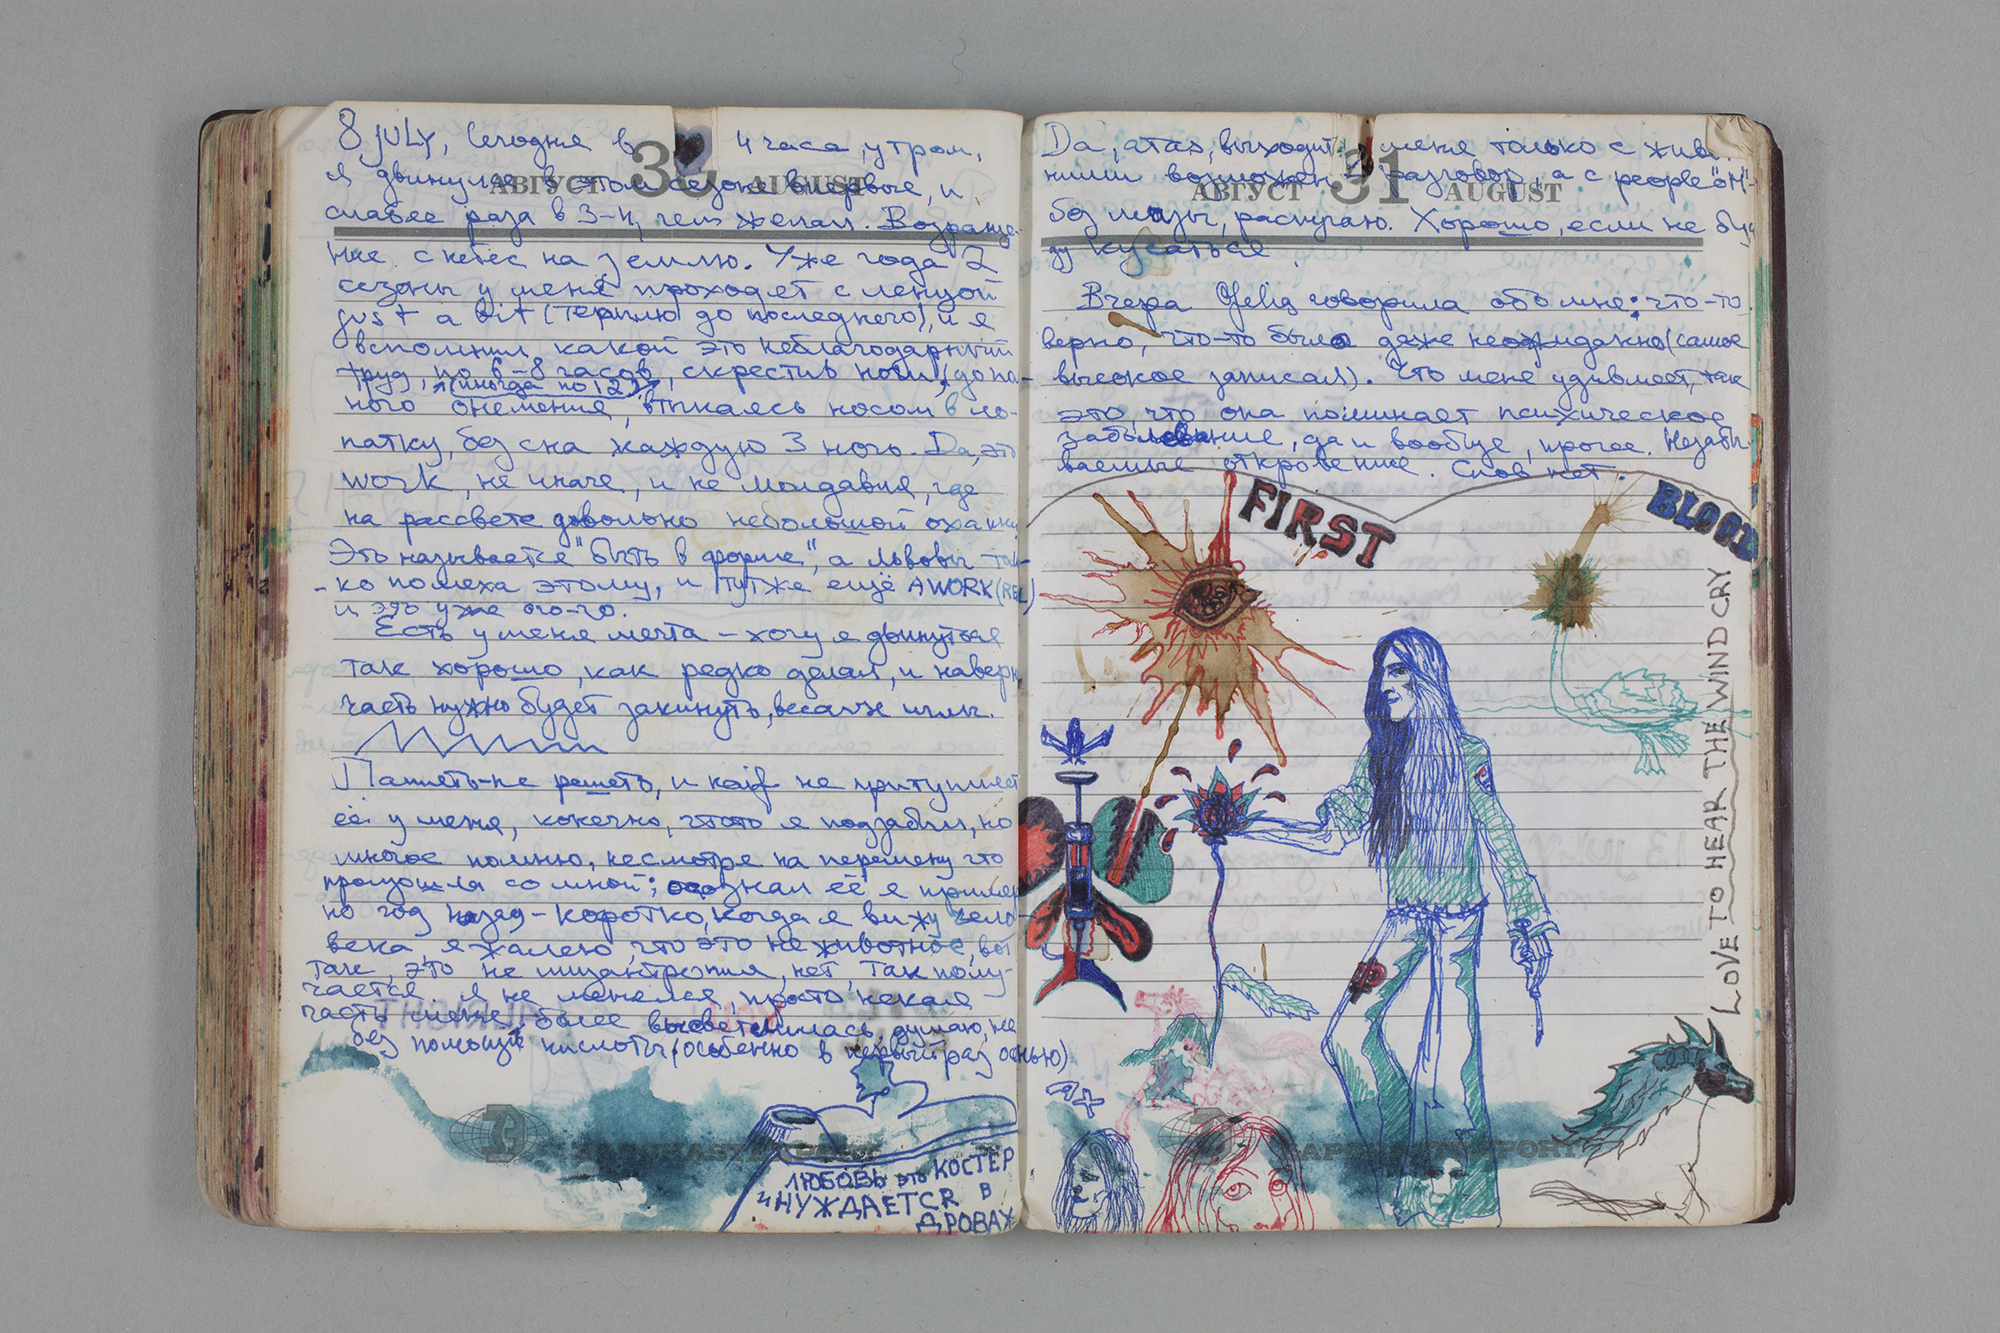 8 JULY, Сегодня в 4 часа, утром,
АВГУСТ 30 AUGUST
я двинулся в этом сезоне впервые, и
слабее раза в 3-4, чем желал. Возраще-
ние с небес на землю. Уже года 2
сезоны у меня проходят с ленцой
just a bit (терплю до последнего), и я
вспомнил какой это неблагодарный
труд, по 6-8 часов, скрестив ноги, (до пол-
(иногда по 12)
ного онемения, втыкаясь носом в ло-
патку, без сна каждую 3 ночь. Да, это
work, не иначе, и не Молдавия, где
на рассвете довольно небольшой охапки
Это называется "быть в форме", а львовы толь-
ко помеха этому, и тут же ещё A WORK (REL)
и это уже ого-го.
Есть у меня мечта – хочу я двинуться
так хорошо, как редко делал, и наверн
часть нужно будет закинуть, весай иглы.
Память-не решето, и kaif не притупляет
её у меня, конечно, чтото я подзабыл, но
многое помню, несмотря на перемену что
произошла со мной; осознал её я пример
но год назад – коротко, когда я вижу чело-
века, я жалею, что это не животное, вот
так, это не мизантропия, нет, так полу-
чается, я не менялся, просто некая
часть меня более высветлилась, думаю, не
без помощи кислоты (особенно в первый раз осенью)
ЛЮБОВЬ это КОСТЕР
и НУЖДАЕТСЯ В
ДРОВАХ
ZAPCHASTEXPORT
Да, атаз, выходит у меня только с жив.
АВГУСТ 31 AUGUST
ними возможен разговор, а с people "ом"-
без мазы, распугаю. Хорошо, если не бу
ду кусаться.
Вчера Ofelia говорила обо мне: что-то
верно, что-то было даже неожиданно (самое
высокое записал). Что меня удивляет, так
это, что она поминает психическое
заболевание, да и вообще, прочее. Незабы-
ваемые откровение. Слов нет.
FIRST
BLOOD
LOVE TO HEAR THE WIND CRY
ZAPCHASTEXPORT